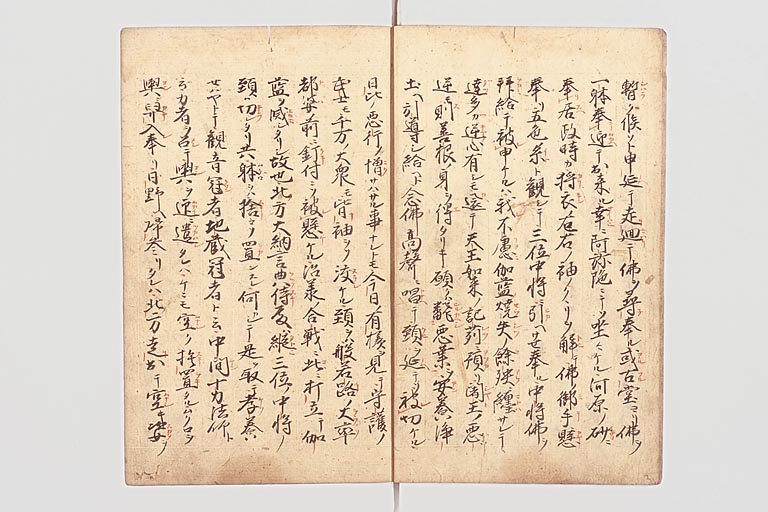 暫ク候ヘト申延テ走廻テ佛ヲ尋奉ル或古堂ヨリ佛ヲ
一躰奉迎テ出来ル幸ニ阿弥陀ニテソ坐シケル河原ノ砂ニ
奉居政時カ狩衣ノ左右ノ袖ノクヽリヲ解テ佛ノ御手ニ懸
奉ル五色ノ糸ト観シテ三位中将ニ引ヘサセ奉ル中将佛ヲ
拝給テ被申ケルハ我不慮伽藍焼失ノ餘殃纏サレテ
達多カ逆心有シモ還テ天王如来ノ記莂預リ闍王ノ悪
逆則善根ノ身ヲ得タリキ願クハ飜悪業ヲ安養ノ浄
土ヘ引導シ給ヘトテ念佛高聲ニ唱テ頸ヲ延テソ被切ケル
日比ノ悪行ノ憎サハサル事ナレトモ今日ノ有様ヲ見テ守護ノ
武士モ千万ノ大衆モ皆袖ヲソ渡ケル頸ヲハ般若路ノ大卒
都婆前ニ釘付ニソ被懸ケル治承ノ合戦ニ此ニ打立テ伽
藍ヲ滅シタリシ故也北方大納言典侍殿ハ縦三位中将ノ
頸ハ切レタリ共躰ヲハ捨テソ置ンスラン何ニシテ是ヲ取テ孝養
セハヤトテ観音冠者地蔵冠者ト云中間十力法師ト
云力者ヲ召テ輿ヲ迎ニ遣タレハケニモ空ク捨置タルムクロヲ
輿ニ舁入奉リ日野ヘ帰参リタレハ北方走出テ空キ姿ヲ